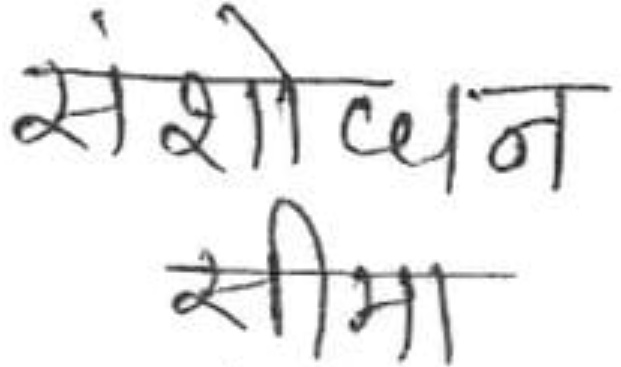 संशोधन
सीमा